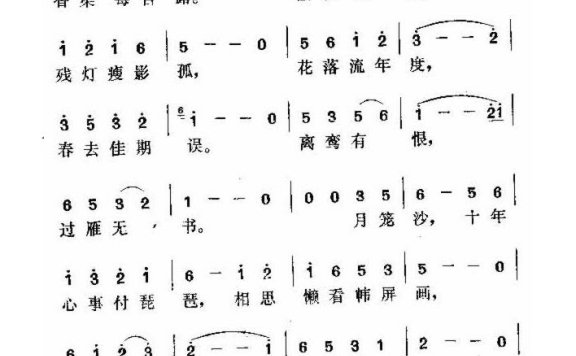 1̇ 2̇ 1̇ 6 | 5 – – 0 | 5 6 1̇ 2̇ | 3̇ – – 2̇ |
残灯瘦影孤， 花落流年度，
3̇ 5̇ 3̇ 2̇ | 6 1̇ – – 0 | 5 3 5 6 | 1̇ – – 2̇1̇ |
春去佳期误。 离鸾有恨，
6 5 3 2 | 1 – – 0 | 0 0 3 5 | 6 – 5 6 |
过雁无书。 月笼沙，十年
1̇ 3̇ 2̇ 1̇ | 6 – 1̇ 2̇ | 1̇ 6 5 3 | 5 – – 0 |
心事付琵琶，相思懒看帏屏画，